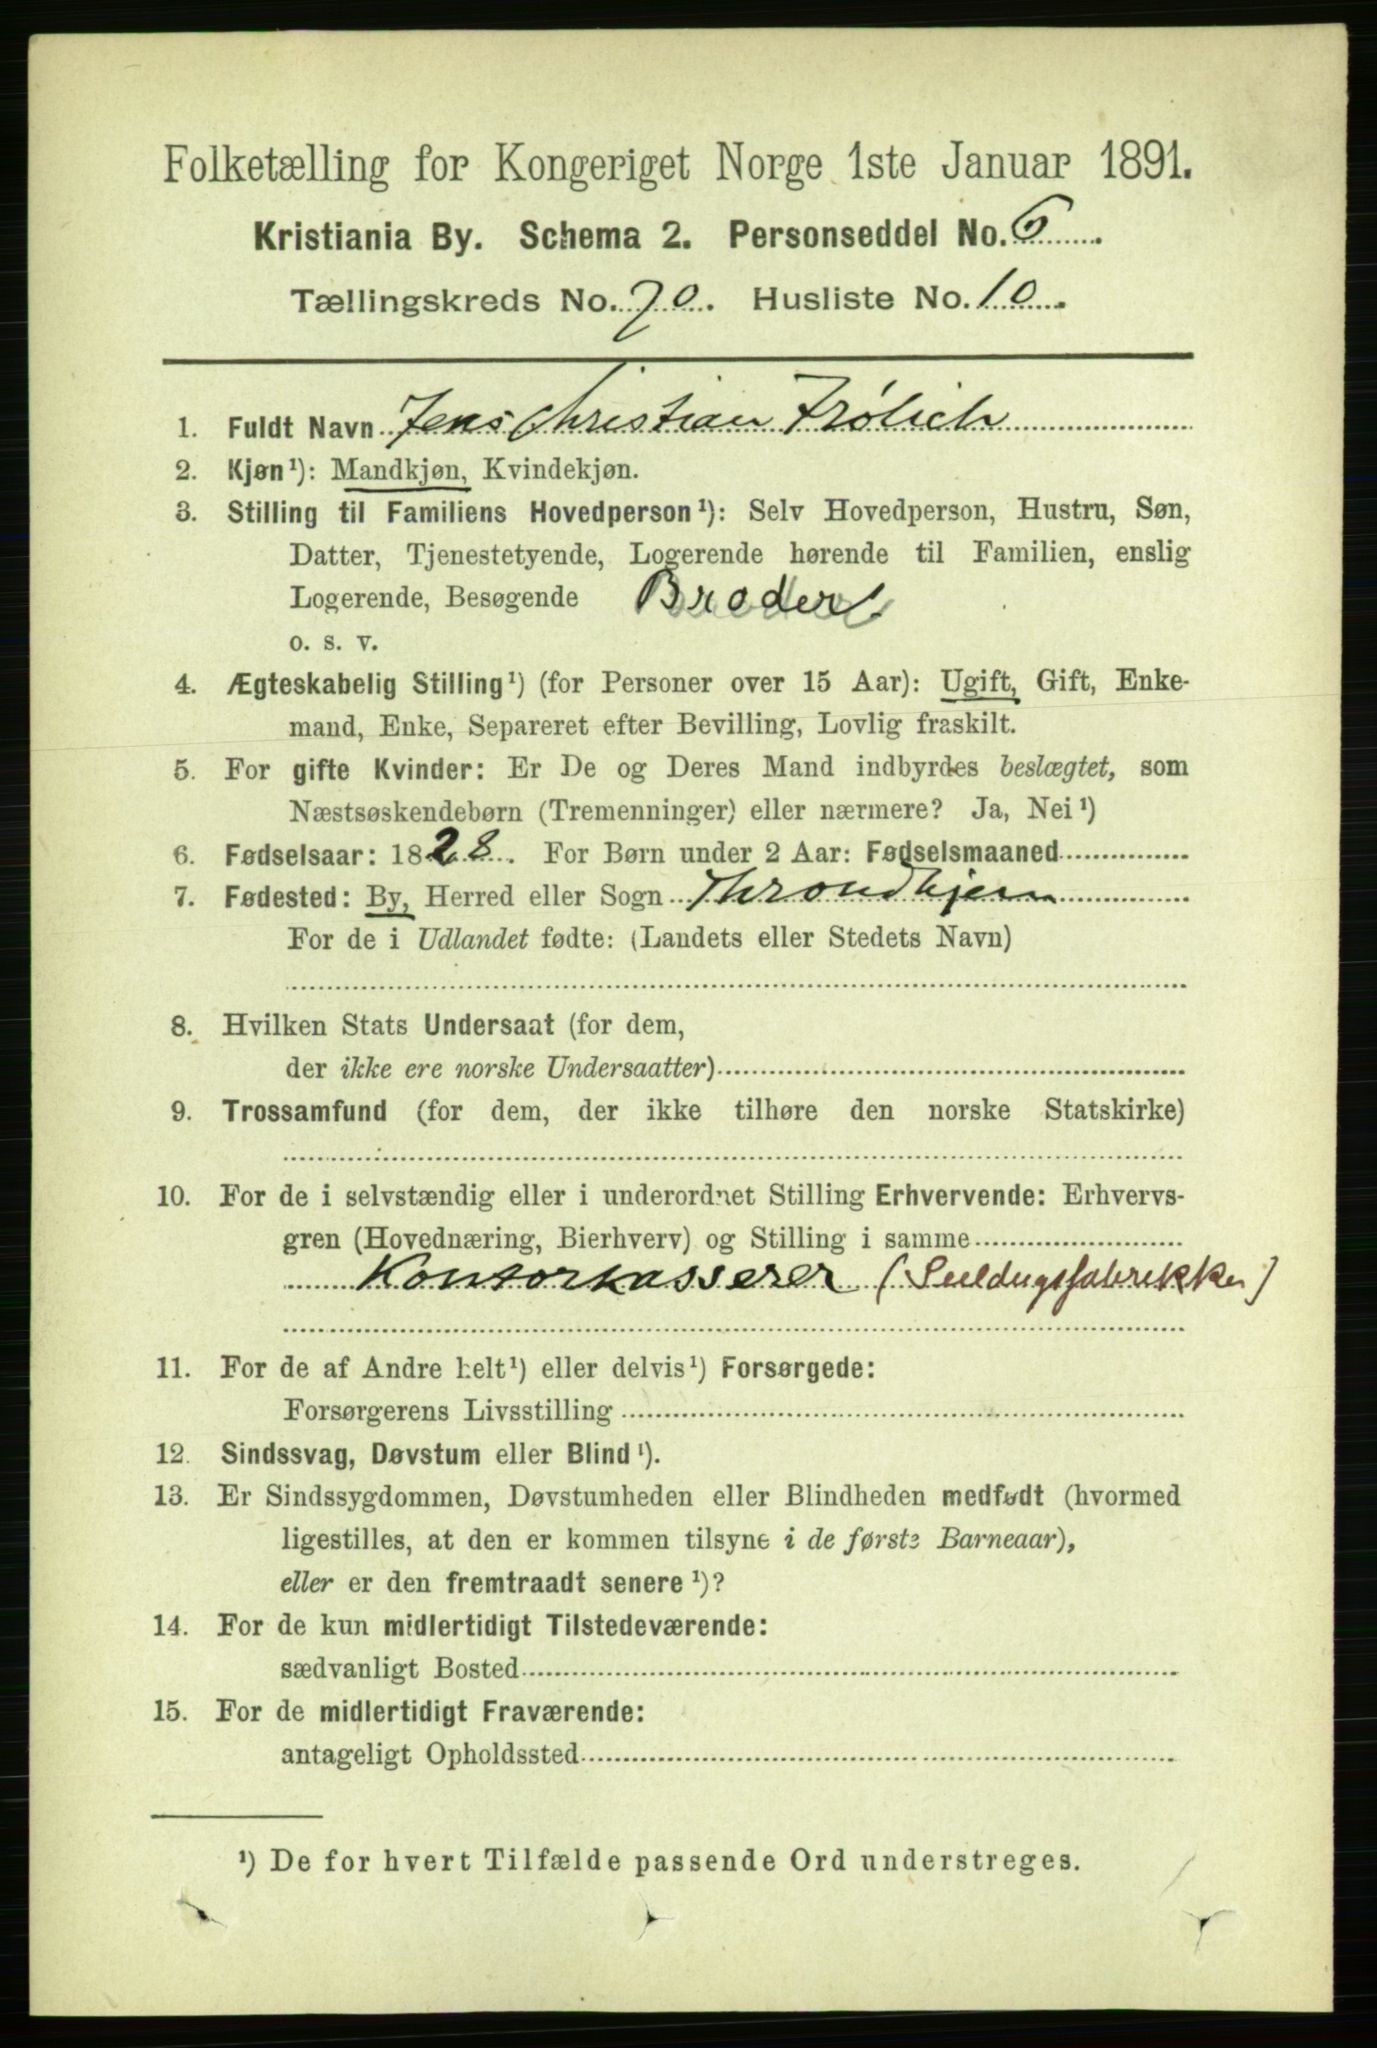 Folketælling for Kongeriget Norge 1ste Januar 1891.
Kristiania By. Schema 2. Personseddel No. 6
Tællingskreds No. 70. Husliste No. 10.
1. Fuldt Navn Jens Christian Frölich
2. Kjøn¹): Mandkjøn, Kvindekjøn.
3. Stilling til Familiens Hovedperson¹): Selv Hovedperson, Hustru, Søn,
Datter, Tjenestetyende, Logerende hørende til Familien, enslig
Logerende, Besøgende Broder
o. s. v.
4. Ægteskabelig Stilling¹) (for Personer over 15 Aar): Ugift, Gift, Enke-
mand, Enke, Separeret efter Bevilling, Lovlig fraskilt.
5. For gifte Kvinder: Er De og Deres Mand indbyrdes beslægtet, som
Næstsøskendebørn (Tremenninger) eller nærmere? Ja, Nei¹)
6. Fødselsaar: 1828. For Børn under 2 Aar: Fødselsmaaned
7. Fødested: By, Herred eller Sogn Throndhjem
For de i Udlandet fødte: (Landets eller Stedets Navn)
8. Hvilken Stats Undersaat (for dem,
der ikke ere norske Undersaatter)
9. Trossamfund (for dem, der ikke tilhøre den norske Statskirke)
10. For de i selvstændig eller i underordnet Stilling Erhvervende: Erhvervs-
gren (Hovednæring, Bierhverv) og Stilling i samme
Kontorkasserer (Seildugsfabrikken)
11. For de af Andre helt¹) eller delvis¹) Forsørgede:
Forsørgerens Livsstilling
12. Sindssvag, Døvstum eller Blind¹).
13. Er Sindssygdommen, Døvstumheden eller Blindheden medfødt (hvormed
ligestilles, at den er kommen tilsyne i de første Barneaar),
eller er den fremtraadt senere¹)?
14. For de kun midlertidigt Tilstedeværende:
sædvanligt Bosted
15. For de midlertidigt Fraværende:
antageligt Opholdssted
¹) De for hvert Tilfælde passende Ord understreges.